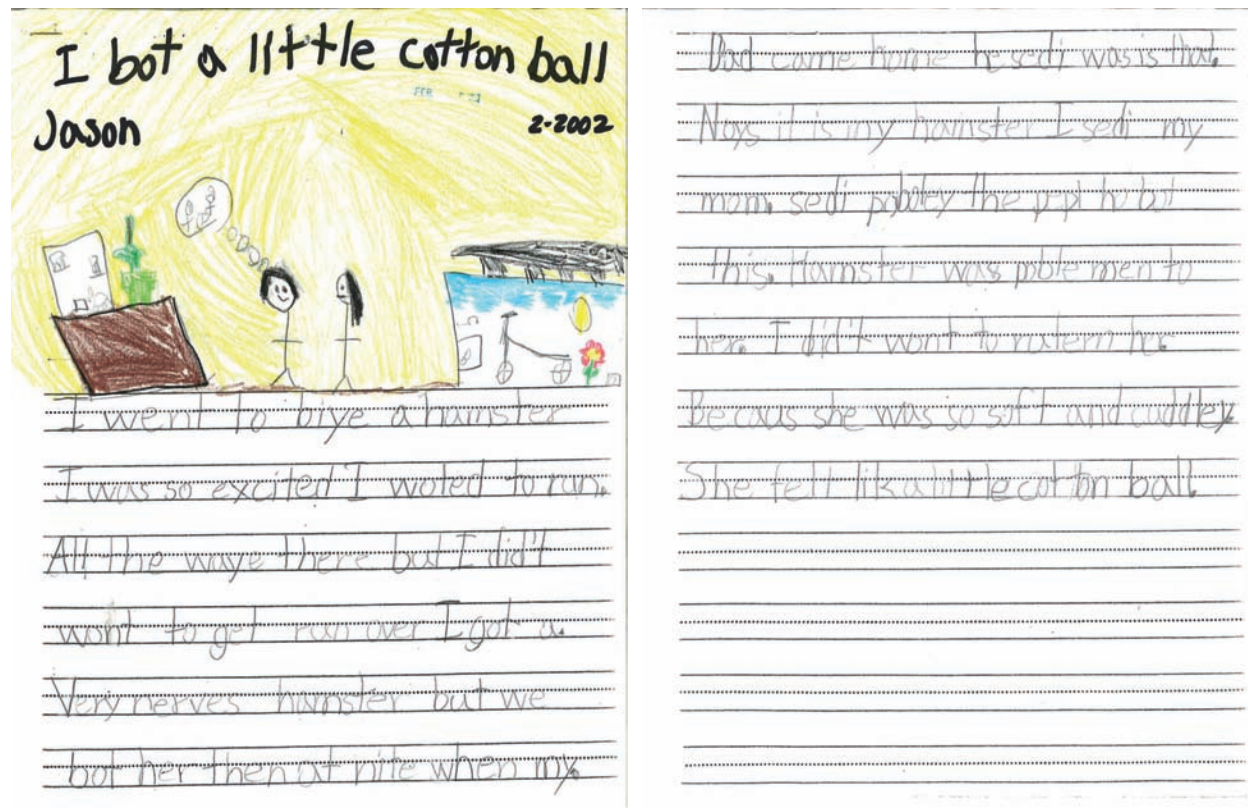 I bot a little cotton ball
Jason
2-2002
I went to biye a hamster
I was so excited I woted to run.
All the waye there but I did't
wont to get run over I got a.
Very nerves hamster but we
bot her then at nite when my.
Dad came home he sedi was is that.
Noys it is my hamster I sedi my
mom. sedi pobley the pepl ho bot
this. Hamster was poble men to
her. I did't wont to rutern her.
Becaus she was so soft and cuddley.
She felt lik a little cotton ball.